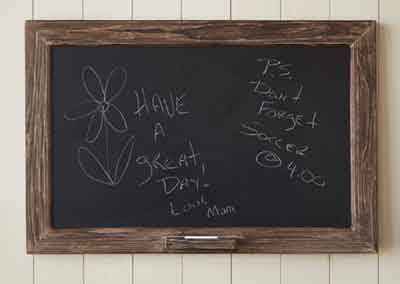 HAVE
A
GREAT,
DAY.
Love Mom
P.S.
Don't
Forget
Soccer
@ 4:00